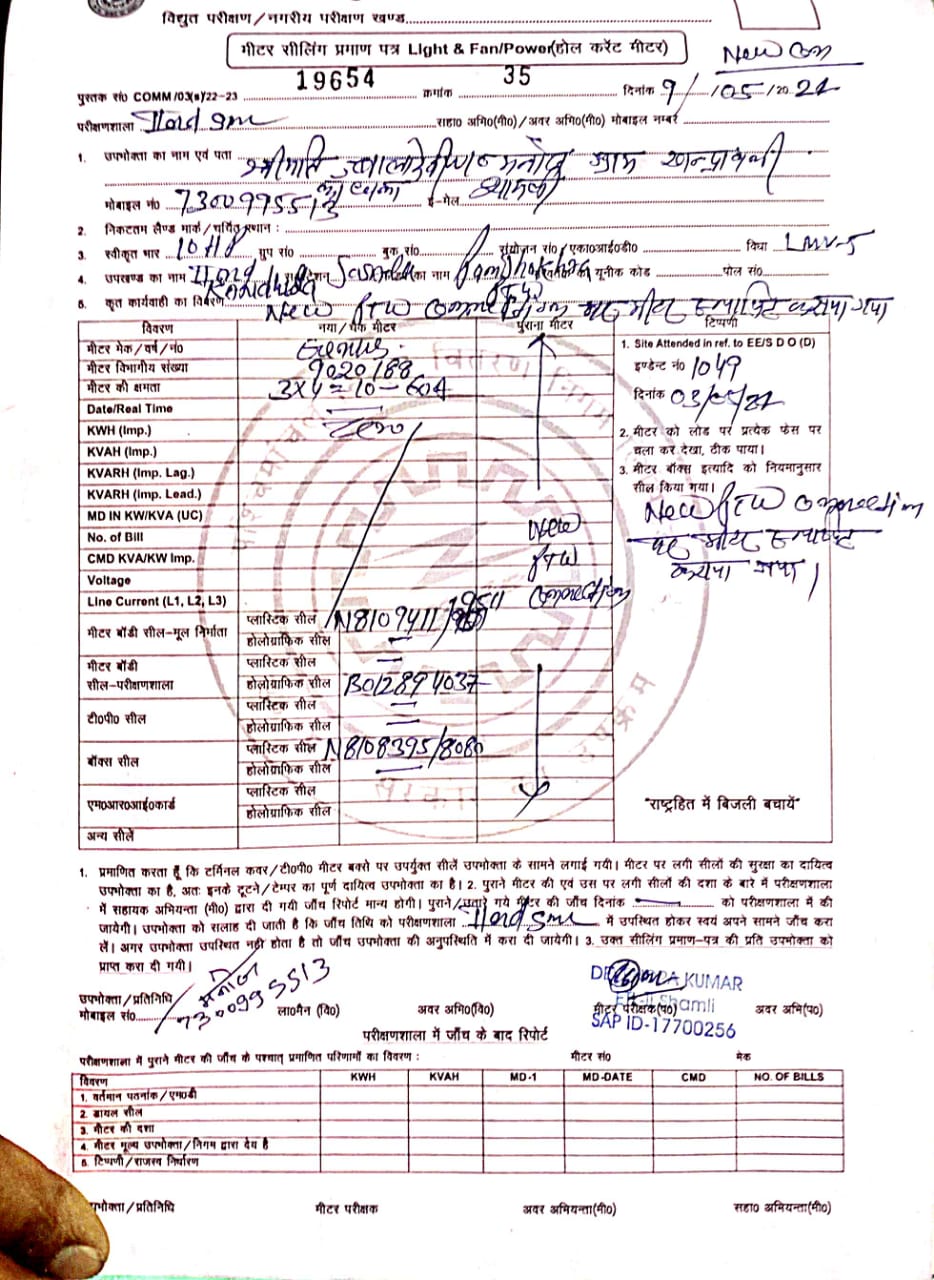 विद्युत परीक्षण/नगरीय परीक्षण खण्ड
मीटर सीलिंग प्रमाण पत्र Light & Fan/Power(होल करेंट मीटर)
New Con
पुस्तक सं0 COMM/03(s)/22-23 19654 क्रमांक 35 दिनांक 9/05/20 22
परीक्षणशाला सहा0 अभि0(मी0)/अवर अभि0(मी0) मोबाइल नम्बर
1. उपभोक्ता का नाम एवं पता श्रीमति मनोज ग्राम
मोबाइल नं0 7300995513 ई-मेल
2. निकटतम लैण्ड मार्क/चर्चित स्थान :
3. स्वीकृत भार 10 HP ग्रुप सं0 बुक सं0 संयोजन सं0/एका0आई0डी0 विधा LMV-5
4. उपखण्ड का नाम का नाम यूनीक कोड पोल सं0
5. कृत कार्यवाही का विवरण New PTW Connection पर मीटर स्थापित कराया गया
विवरण नया/चैक मीटर पुराना मीटर टिप्पणी
मीटर मेक/वर्ष/नं0 Genus
मीटर विभागीय संख्या 9020188
मीटर की क्षमता 3x4=10-60A
Date/Real Time
KWH (Imp.) Zero
KVAH (Imp.)
KVARH (Imp. Lag.)
KVARH (Imp. Lead.)
MD IN KW/KVA (UC)
No. of Bill
CMD KVA/KW Imp.
Voltage
Line Current (L1, L2, L3)
New
PTW
Connection
मीटर बॉडी सील-मूल निर्माता प्लास्टिक सील N8109411/
होलोग्राफिक सील
मीटर बॉडी सील-परीक्षणशाला प्लास्टिक सील
होलोग्राफिक सील B012894037
टी0पी0 सील प्लास्टिक सील
होलोग्राफिक सील
बॉक्स सील प्लास्टिक सील N8108395/8080
होलोग्राफिक सील
एम0आर0आई0कार्ड प्लास्टिक सील
होलोग्राफिक सील
अन्य सीलें
1. Site Attended in ref. to EE/S D O (D)
इण्डेन्ट नं0 1049
दिनांक 03/05/22
2. मीटर को लोड पर प्रत्येक फेस पर
चला कर देखा, ठीक पाया।
3. मीटर बॉक्स इत्यादि को नियमानुसार
सील किया गया।
New PTW Connection
पर मीटर स्थापित
कराया गया
"राष्ट्रहित में बिजली बचायें"
1. प्रमाणित करता हूँ कि टर्मिनल कवर/टी0पी0 मीटर बक्से पर उपर्युक्त सीलें उपभोक्ता के सामने लगाई गयी। मीटर पर लगी सीलों की सुरक्षा का दायित्व
उपभोक्ता का है, अतः इनके टूटने/टेम्पर का पूर्ण दायित्व उपभोक्ता का है। 2. पुराने मीटर की एवं उस पर लगी सीलों की दशा के बारे में परीक्षणशाला
में सहायक अभियन्ता (मी0) द्वारा दी गयी जाँच रिपोर्ट मान्य होगी। पुराने/उतारे गये मीटर की जाँच दिनांक को परीक्षणशाला में की
जायेगी। उपभोक्ता को सलाह दी जाती है कि जाँच तिथि को परीक्षणशाला में उपस्थित होकर स्वयं अपने सामने जाँच करा
लें। अगर उपभोक्ता उपस्थित नही होता है तो जाँच उपभोक्ता की अनुपस्थिति में करा दी जायेगी। 3. उक्त सीलिंग प्रमाण-पत्र की प्रति उपभोक्ता को
प्राप्त करा दी गयी।
मनोज
7300995513
KUMAR
Shamli
SAP ID-17700256
उपभोक्ता/प्रतिनिधि
मोबाइल सं0 लाइनमैन (वि0) अवर अभि0(वि0) मीटर परीक्षक(प0) अवर अभि(प0)
परीक्षणशाला में जाँच के बाद रिपोर्ट
परीक्षणशाला में पुराने मीटर की जाँच के पश्चात् प्रमाणित परिणामों का विवरण : मीटर सं0 मेक
विवरण KWH KVAH MD-1 MD-DATE CMD NO. OF BILLS
1. वर्तमान पठनांक/एम0डी
2. डायल सील
3. मीटर की दशा
4. मीटर मूल्य उपभोक्ता/निगम द्वारा देय है
5. टिप्पणी/राजस्व निर्धारण
उपभोक्ता/प्रतिनिधि मीटर परीक्षक अवर अभियन्ता(मी0) सहा0 अभियन्ता(मी0)